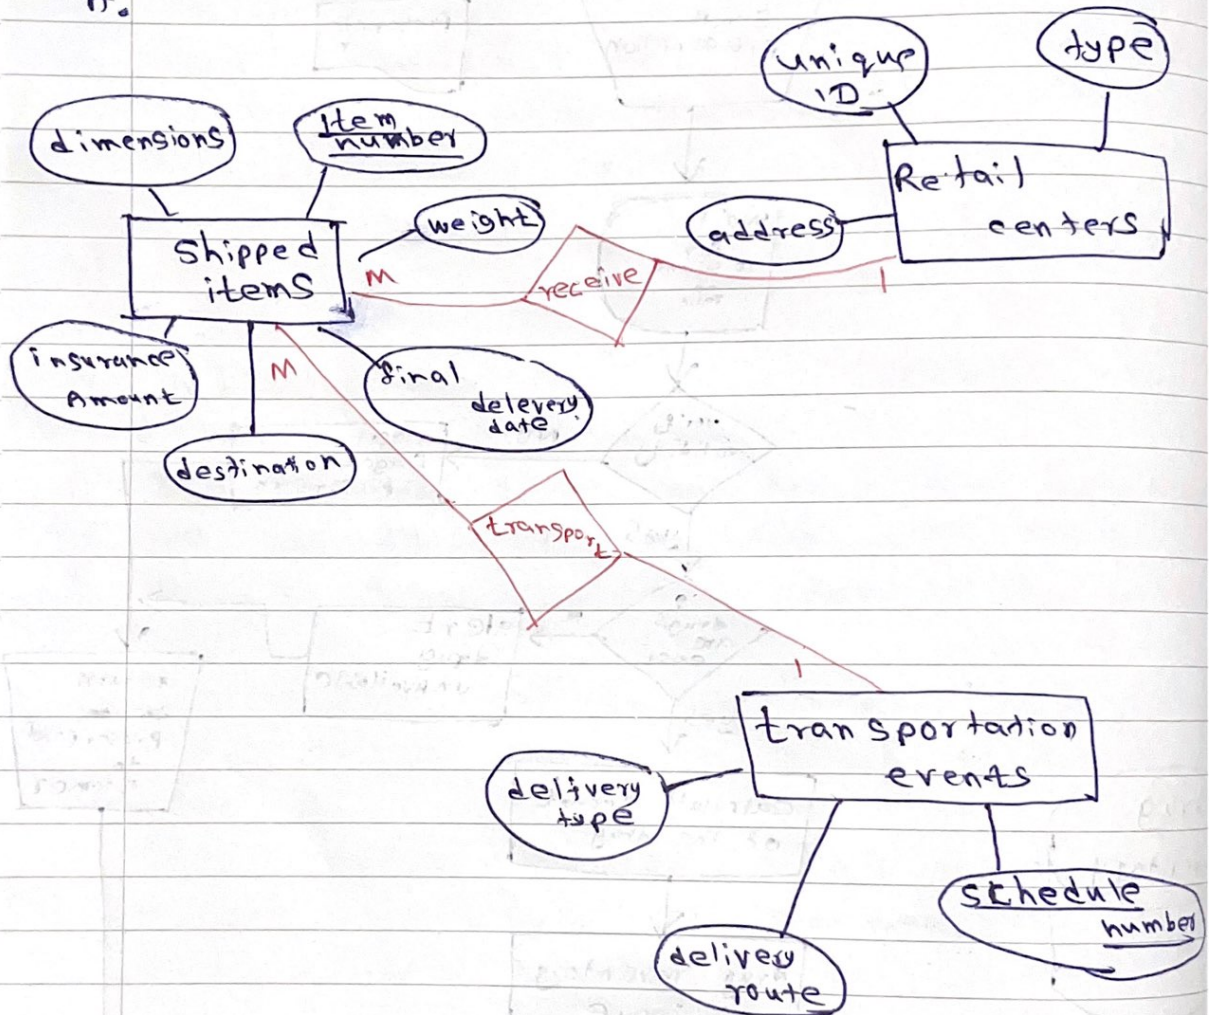 unique
ID
type
dimensions
Item
number
Retail
centers
weight
address
Shipped
items
M
receive
1
insurance
Amount
M
final
delevery
date
destination
transport
1
transportation
events
delivery
type
schedule
number
delivery
route